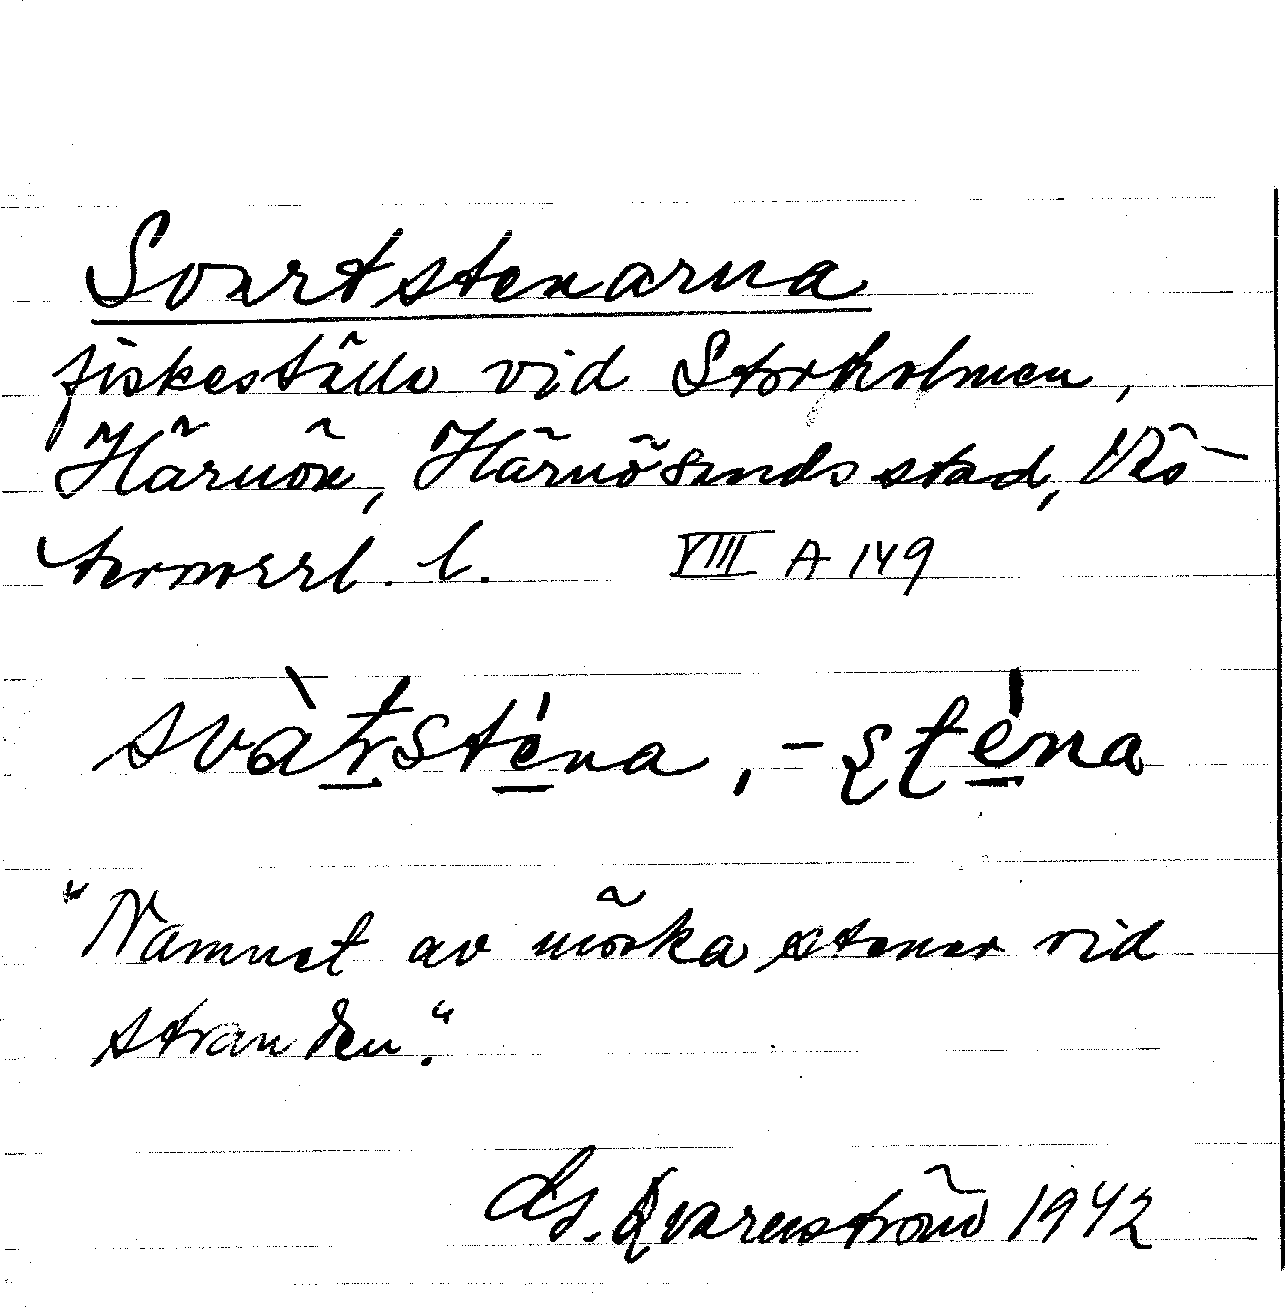 Svartstenarna
fiskeställe vid Storholmen,
Härnön, Härnösands stad, Väs-
ternorrl. l. VIII A 149
svàtsténa, -sténa
"Namnet av mörka stenar vid
stranden."
Qvarnström 1942